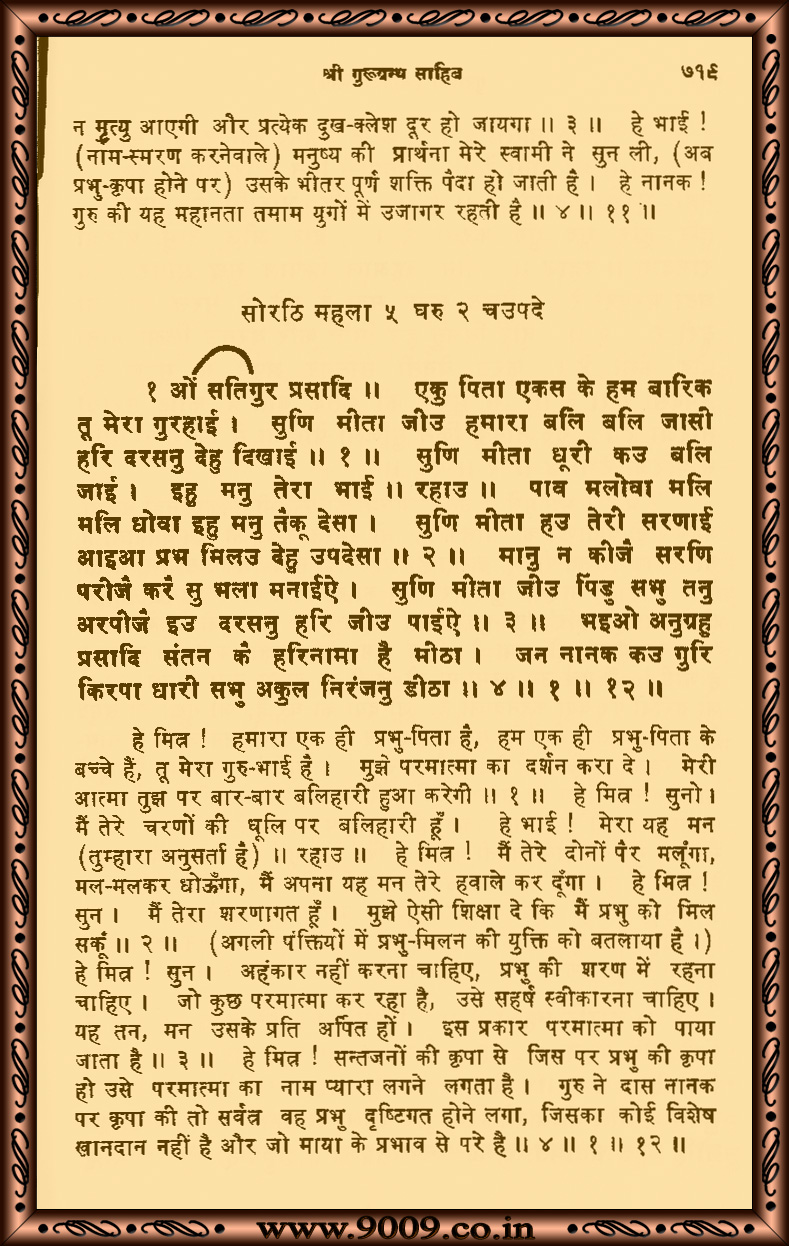 श्री गुरूग्रन्थ साहिब ७१९
न मृत्यु आएगी और प्रत्येक दुख-क्लेश दूर हो जायगा ॥ ३ ॥ हे भाई !
(नाम-स्मरण करनेवाले) मनुष्य की प्रार्थना मेरे स्वामी ने सुन ली, (अब
प्रभु-कृपा होने पर) उसके भीतर पूर्ण शक्ति पैदा हो जाती है । हे नानक !
गुरु की यह महानता तमाम युगों में उजागर रहती है ॥ ४ ॥ ११ ॥
सोरठि महला ५ घरु २ चउपदे
१ ओं सतिगुर प्रसादि ॥ एकु पिता एकस के हम बारिक
तू मेरा गुरहाई । सुणि मीता जीउ हमारा बलि बलि जासी
हरि दरसनु देहु दिखाई ॥ १ ॥ सुणि मीता धूरी कउ बलि
जाई । इहु मनु तेरा भाई ॥ रहाउ ॥ पाव मलोवा मलि
मलि धोवा इहु मनु तैकू देसा । सुणि मीता हउ तेरी सरणाई
आइआ प्रभ मिलउ देहु उपदेसा ॥ २ ॥ मानु न कीजै सरणि
परीजै करै सु भला मनाईऐ । सुणि मीता जीउ पिंडु सभु तनु
अरपीजै इउ दरसनु हरि जीउ पाईऐ ॥ ३ ॥ भइओ अनुग्रहु
प्रसादि संतन कै हरिनामा है मीठा । जन नानक कउ गुरि
किरपा धारी सभु अकुल निरंजनु डीठा ॥ ४ ॥ १ ॥ १२ ॥
हे मित्र ! हमारा एक ही प्रभु-पिता है, हम एक ही प्रभु-पिता के
बच्चे हैं, तू मेरा गुरु-भाई है । मुझे परमात्मा का दर्शन करा दे । मेरी
आत्मा तुझ पर बार-बार बलिहारी हुआ करेगी ॥ १ ॥ हे मित्र ! सुनो ।
मैं तेरे चरणों की धूलि पर बलिहारी हूँ । हे भाई ! मेरा यह मन
(तुम्हारा अनुसर्ता है) ॥ रहाउ ॥ हे मित्र ! मैं तेरे दोनों पैर मलूंगा,
मल-मलकर धोऊँगा, मैं अपना यह मन तेरे हवाले कर दूँगा । हे मित्र !
सुन । मैं तेरा शरणागत हूँ । मुझे ऐसी शिक्षा दे कि मैं प्रभु को मिल
सकूं ॥ २ ॥ (अगली पंक्तियों में प्रभु-मिलन की युक्ति को बतलाया है ।)
हे मित्र ! सुन । अहंकार नहीं करना चाहिए, प्रभु की शरण में रहना
चाहिए । जो कुछ परमात्मा कर रहा है, उसे सहर्ष स्वीकारना चाहिए ।
यह तन, मन उसके प्रति अर्पित हों । इस प्रकार परमात्मा को पाया
जाता है ॥ ३ ॥ हे मित्र ! सन्तजनों की कृपा से जिस पर प्रभु की कृपा
हो उसे परमात्मा का नाम प्यारा लगने लगता है । गुरु ने दास नानक
पर कृपा की तो सर्वत्र वह प्रभु दृष्टिगत होने लगा, जिसका कोई विशेष
खानदान नहीं है और जो माया के प्रभाव से परे है ॥ ४ ॥ १ ॥ १२ ॥
www.9009.co.in